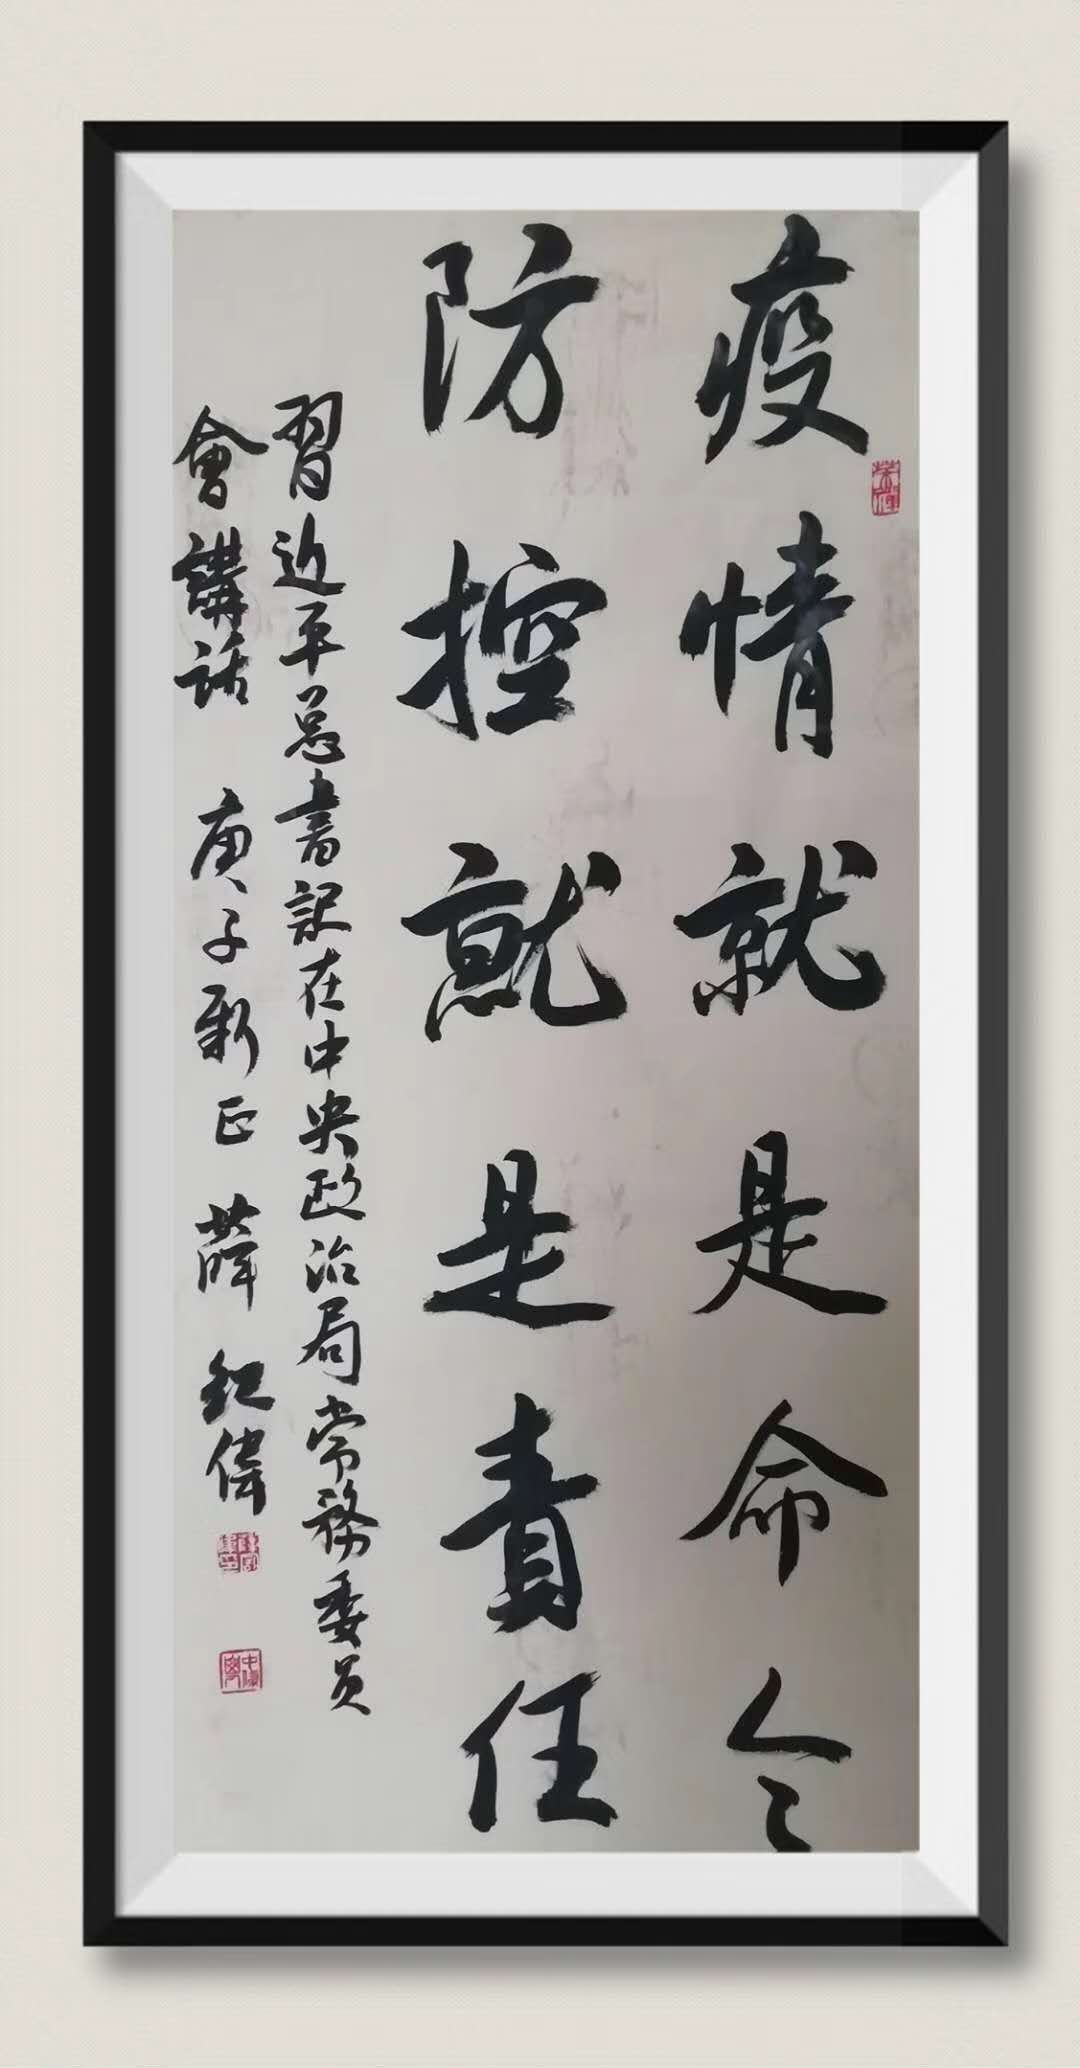 疫情就是命令
防控就是責任
習近平总書記在中央政治局常務委员
會講話 庚子新正 薛紀偉